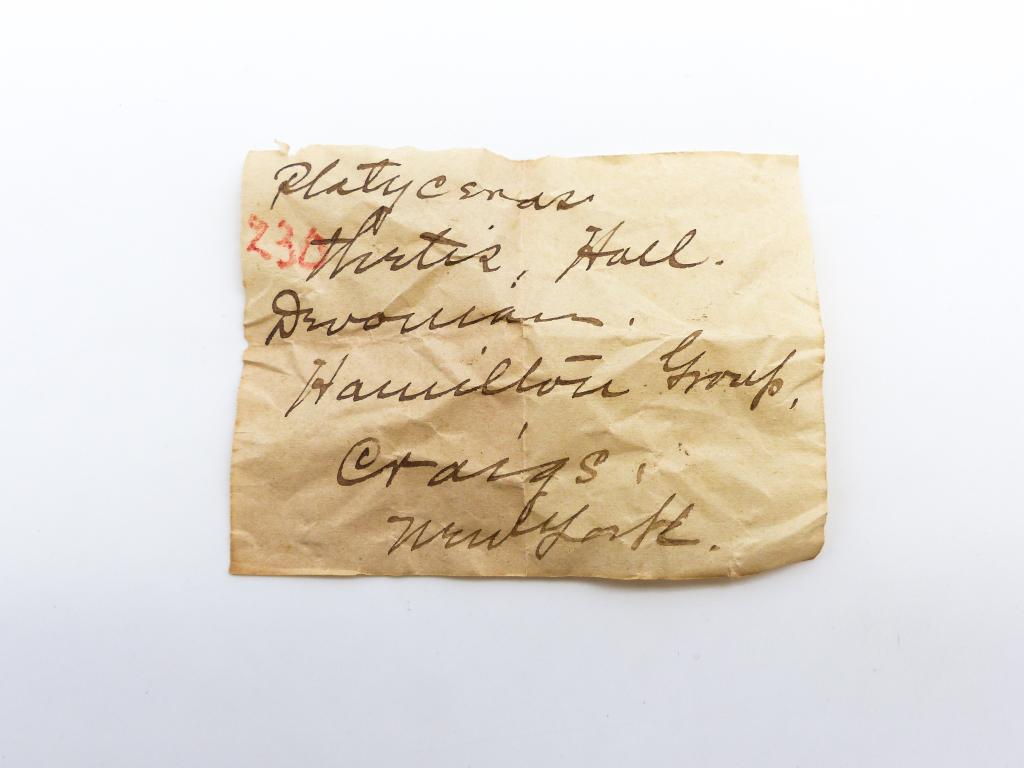 Platyceras
230 thetis, Hall.
Devonian.
Hamilton Group,
Craigs,
New York.